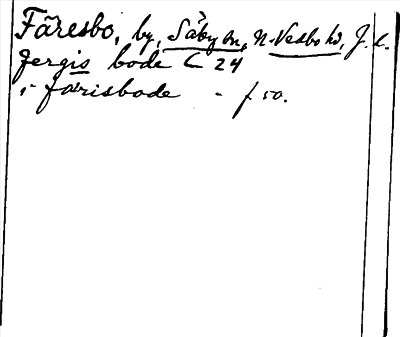 Färesbo, by, Säby sn, N. Vedbo hd, J. l.
fergis bode C 24
i färisbode - f 50.